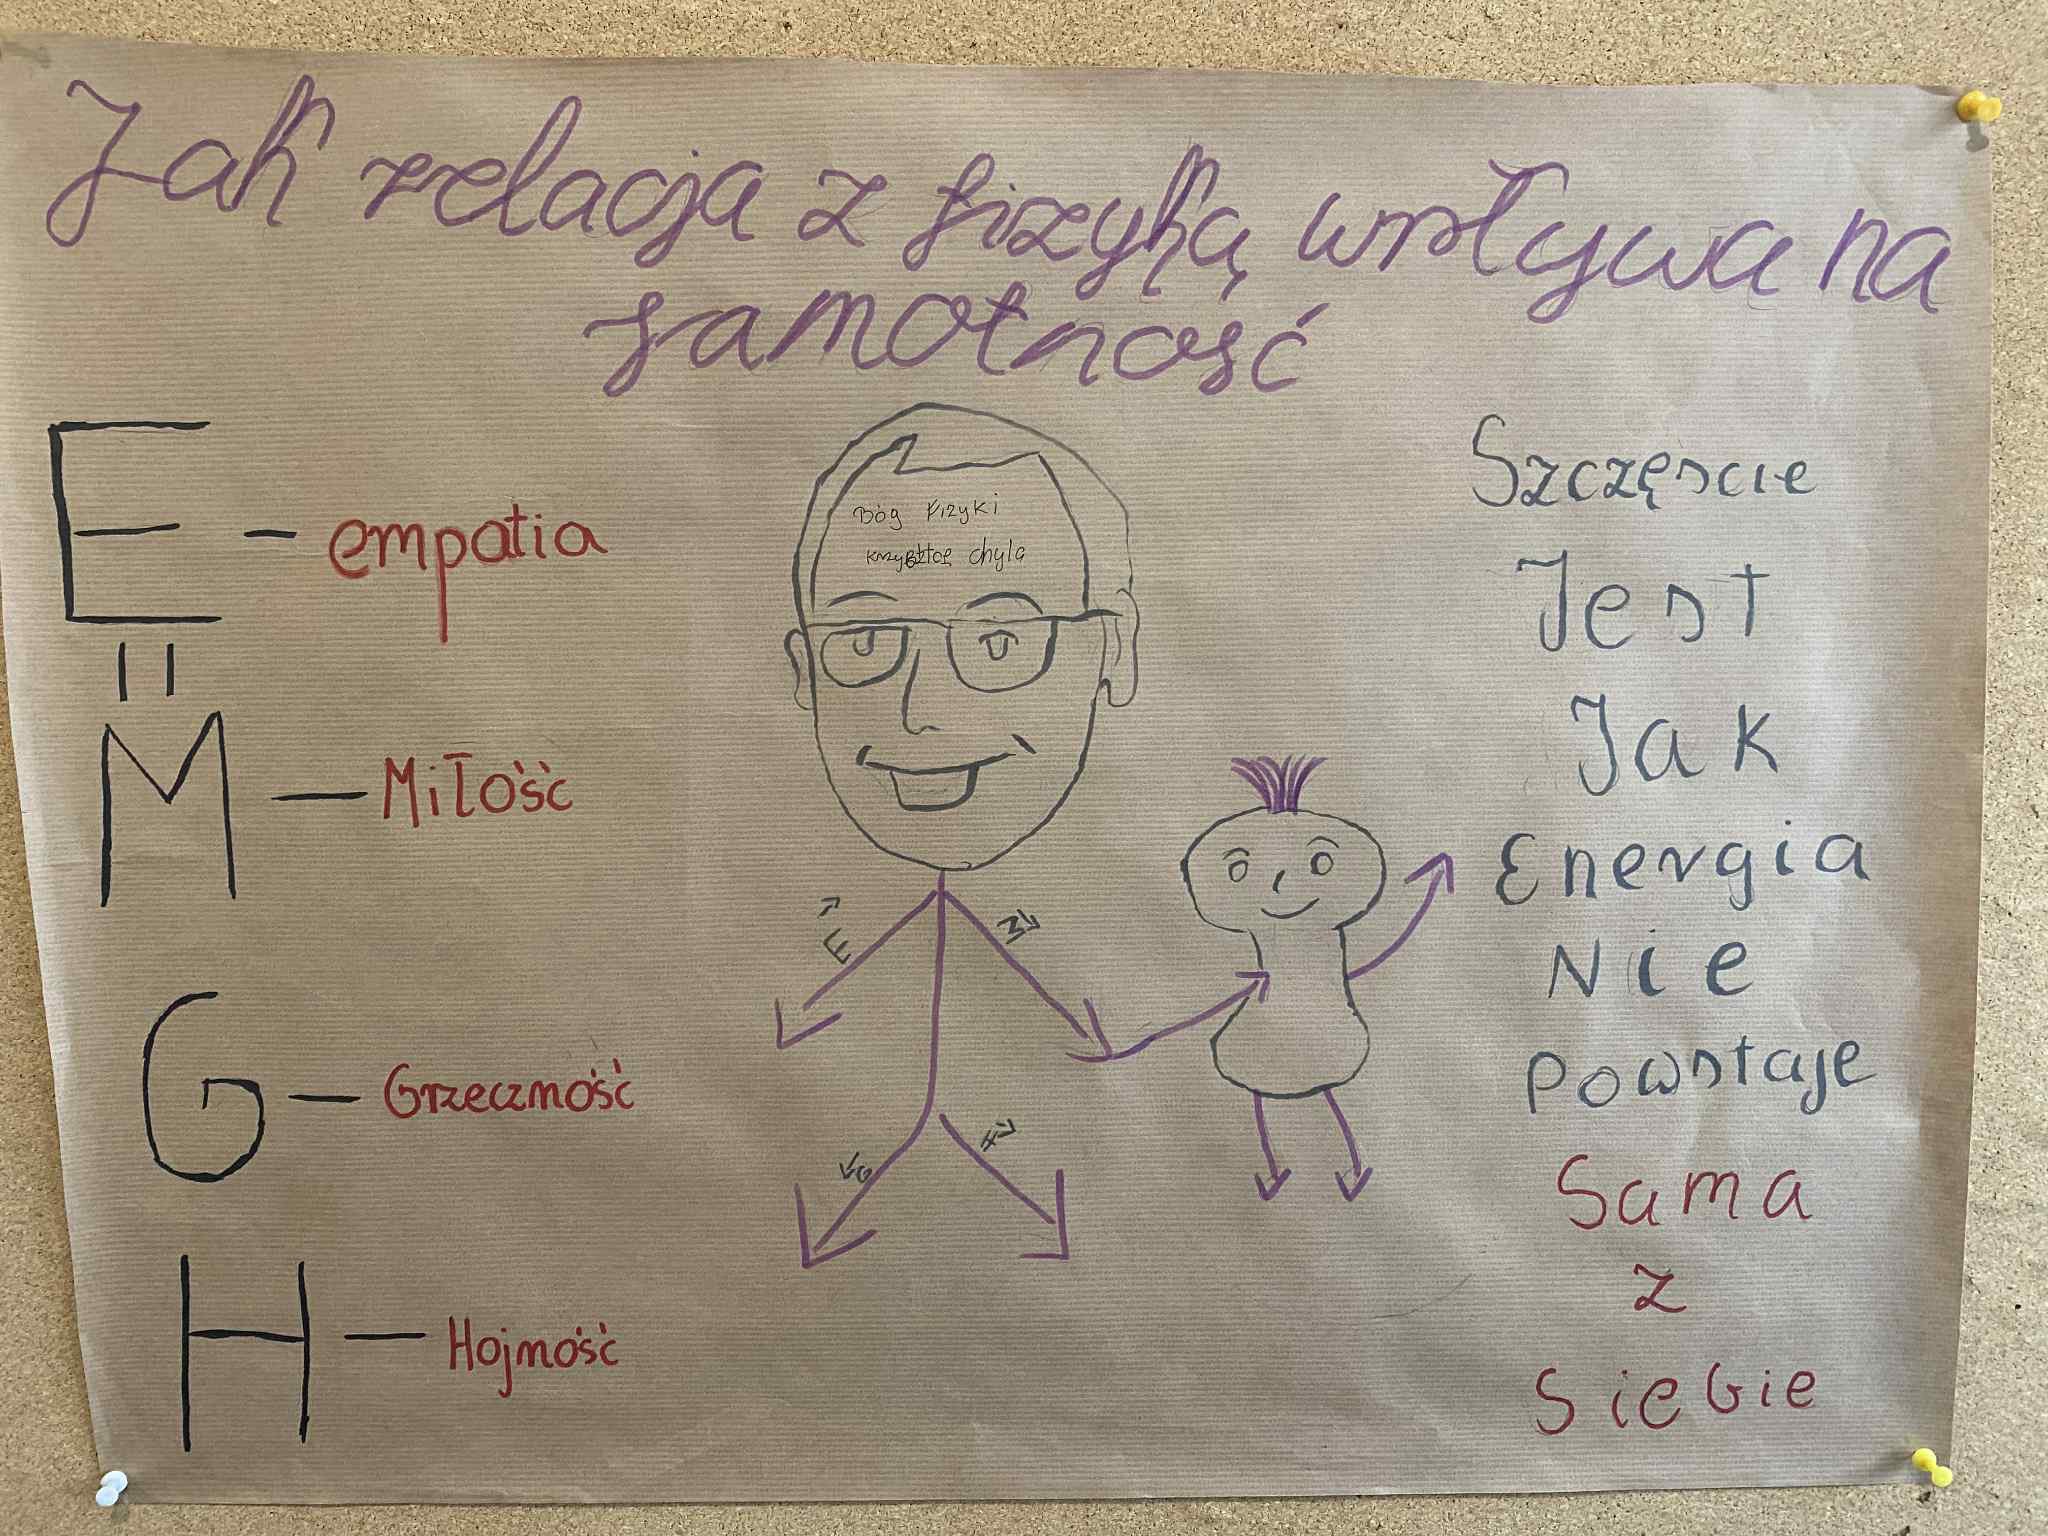 Jak relacja z fizyką wpływa na
samotność
E - empatia
=
M - Miłość
G - Grzeczność
H - Hojność
Bóg Fizyki
chyla
E
M
G
H
Szczęście
Jest
Jak
Energia
Nie
Powstaje
Sama
z
siebie